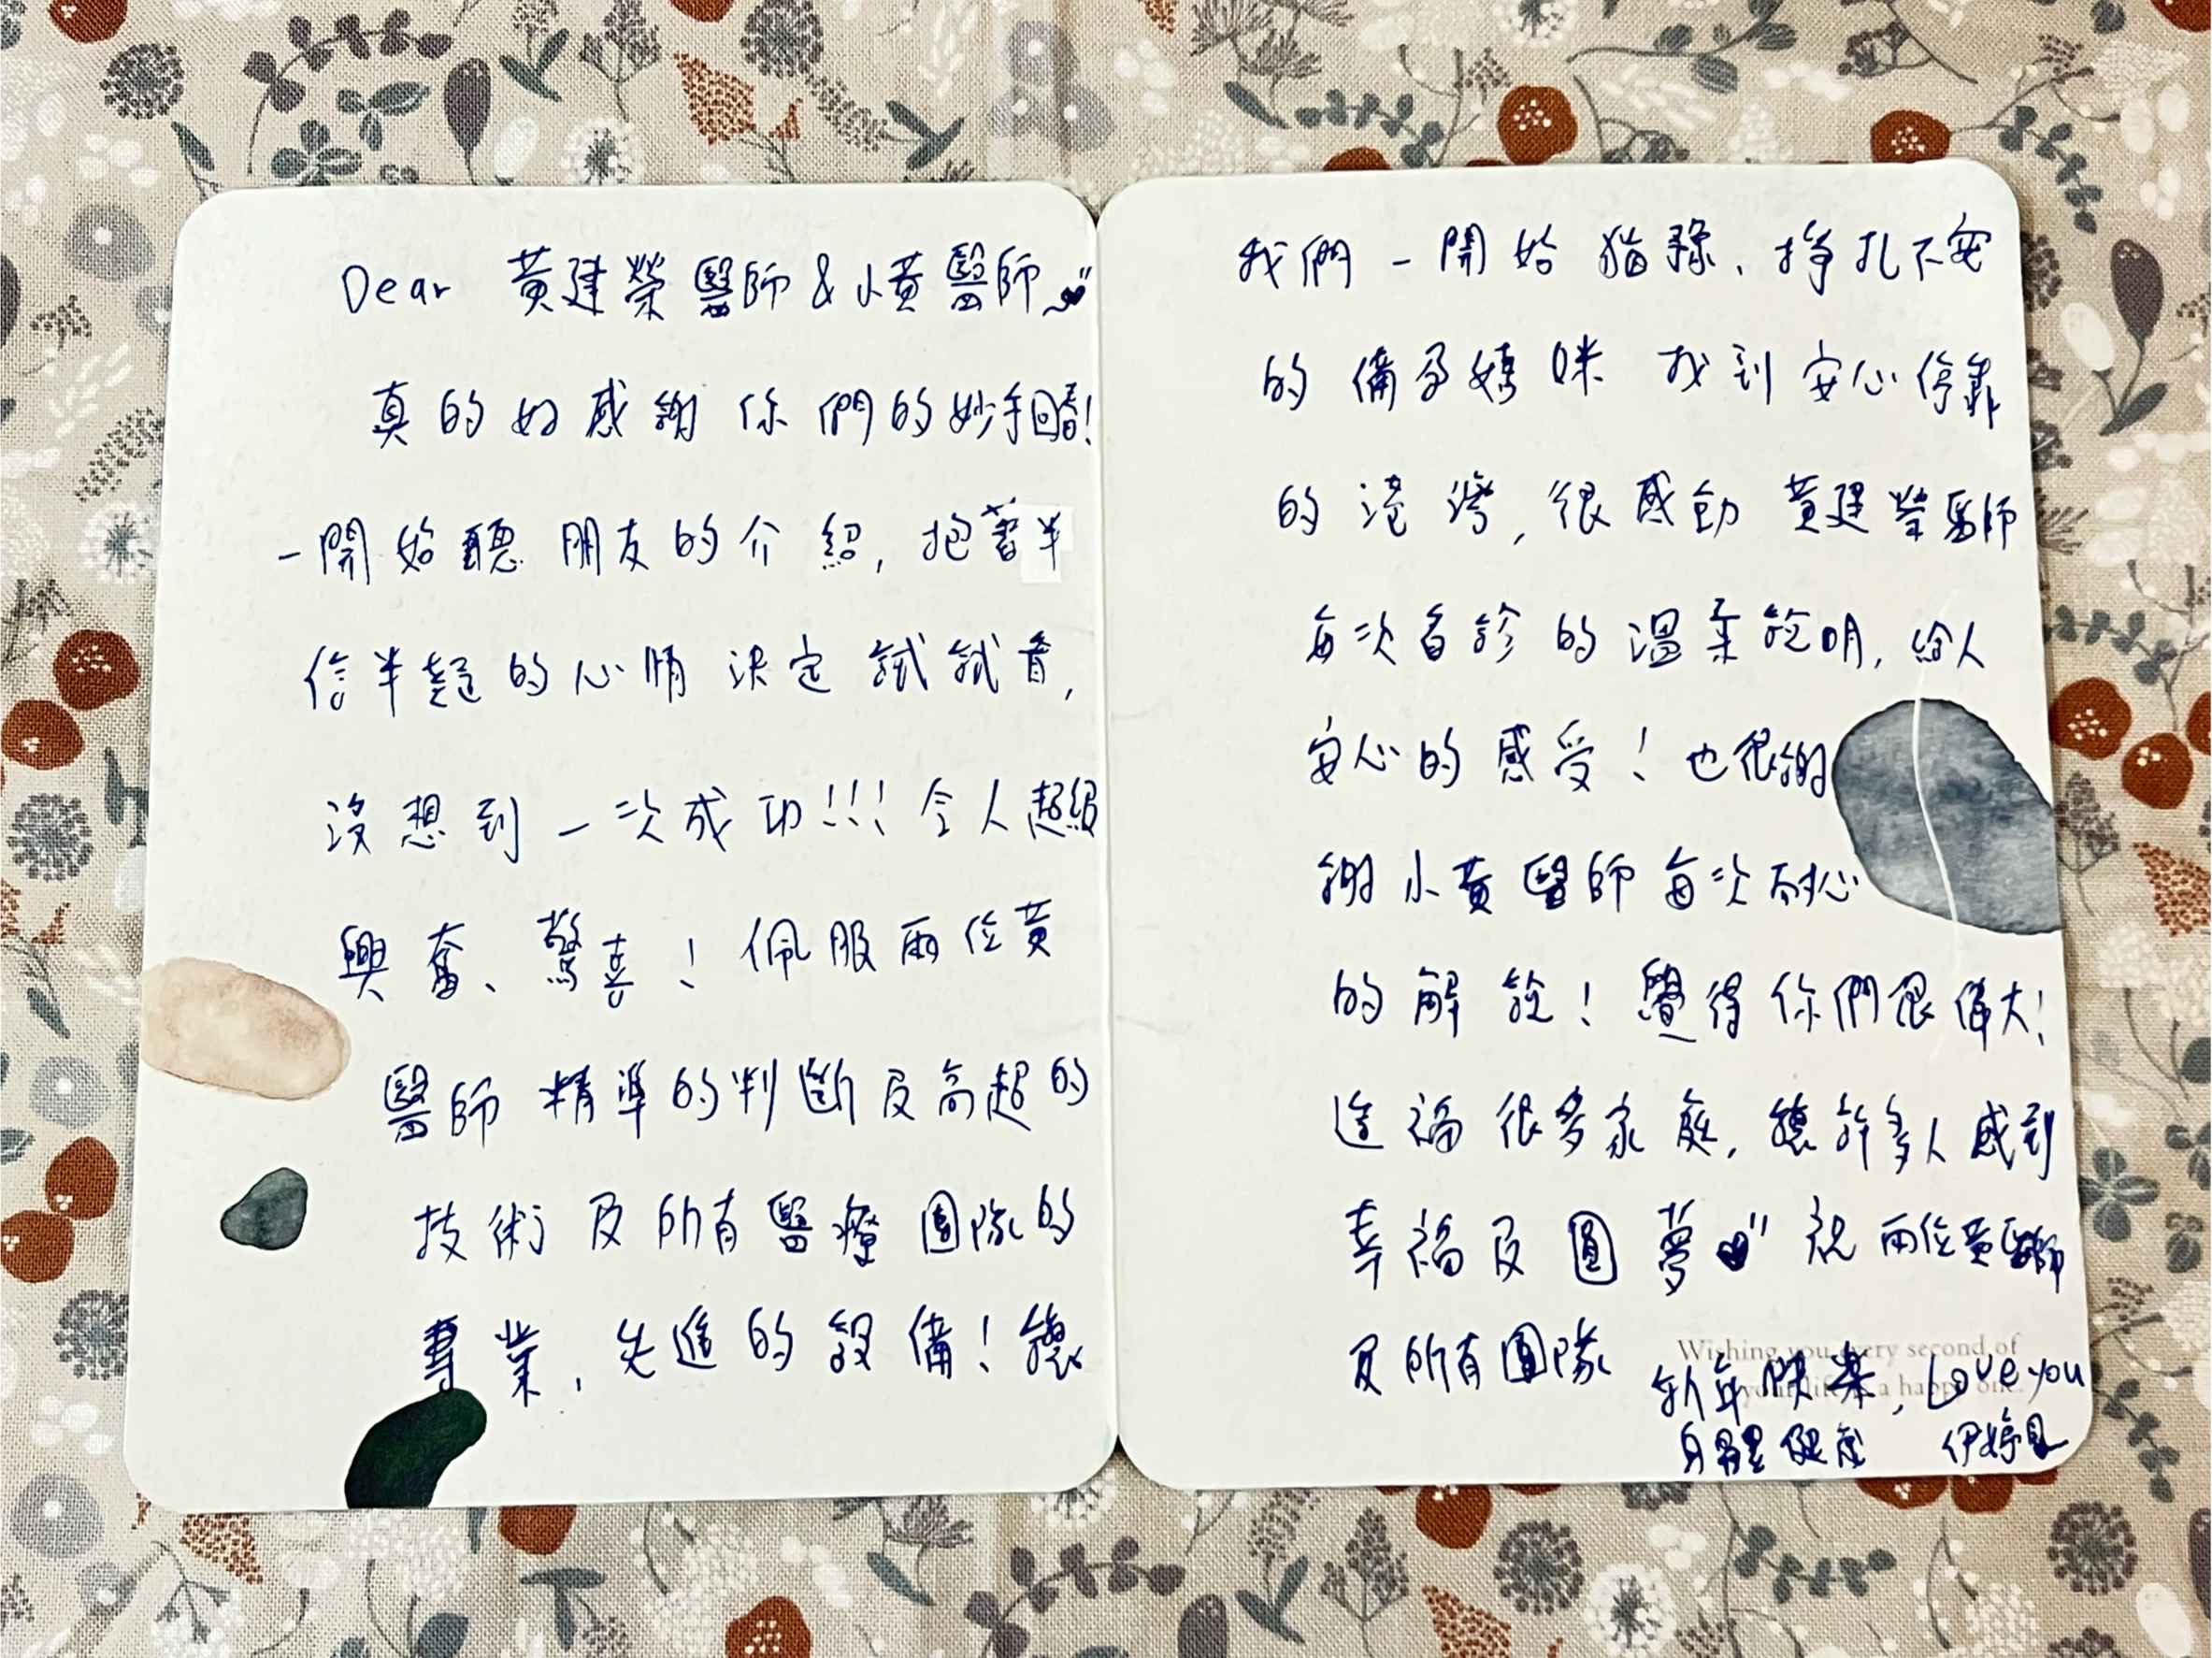 Dear 黃建榮醫師&小黃醫師
真的好感謝你們的妙手回春!
一開始聽朋友的介紹, 抱著半
信半疑的心情決定試試看,
沒想到一次成功!!! 令人超級
興奮、驚喜! 佩服兩位黃
醫師精準的判斷及高超的
技術及所有醫療團隊的
專業, 先進的設備! 讓
我們一開始猶豫、掙扎不安
的備孕媽咪找到安心停靠
的港灣, 很感動黃建榮醫師
每次看診的溫柔說明, 給人
安心的感受! 也很謝
謝小黃醫師每次耐心
的解說! 覺得你們很偉大!
造福很多家庭, 讓許多人感到
幸福及圓夢 祝兩位黃醫師
及所有團隊
Wishing you every second of
your life is a happy one.
新年快樂, Love you
身體健康 伊婷